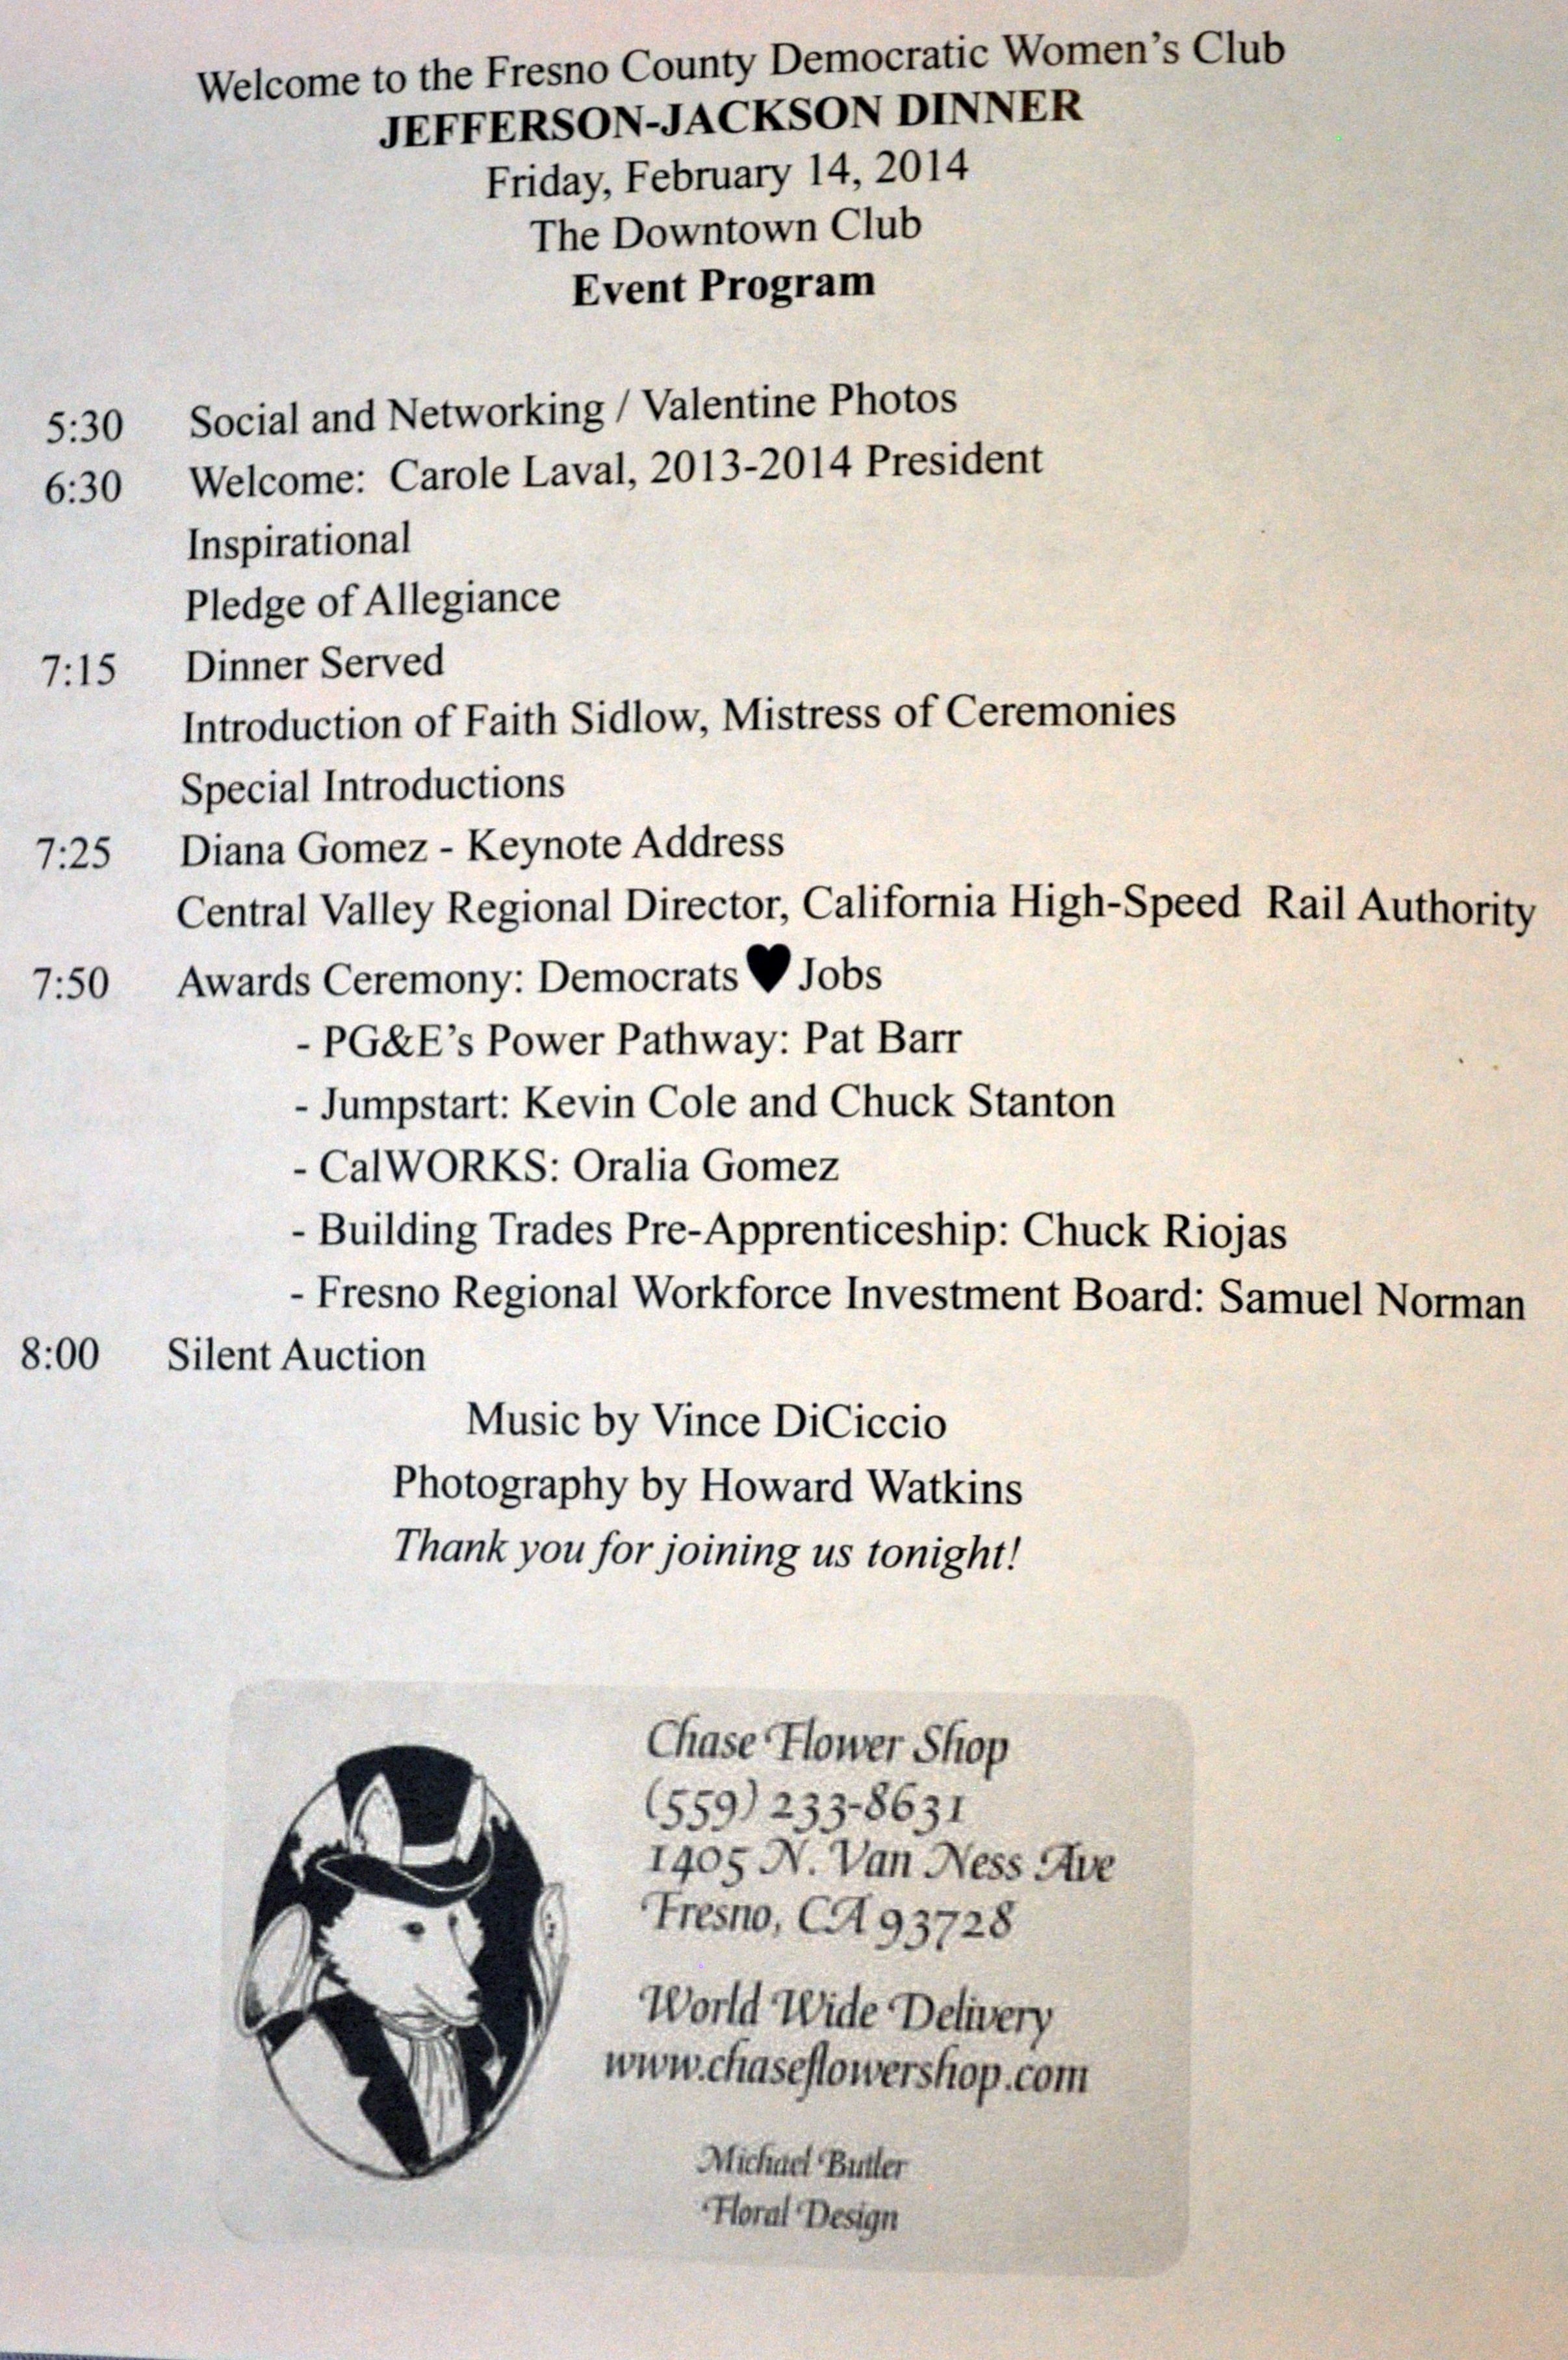 Welcome to the Fresno County Democratic Women's Club
JEFFERSON-JACKSON DINNER
Friday, February 14, 2014
The Downtown Club
Event Program
5:30 Social and Networking / Valentine Photos
6:30 Welcome: Carole Laval, 2013-2014 President
Inspirational
Pledge of Allegiance
7:15 Dinner Served
Introduction of Faith Sidlow, Mistress of Ceremonies
Special Introductions
7:25 Diana Gomez - Keynote Address
Central Valley Regional Director, California High-Speed Rail Authority
7:50 Awards Ceremony: Democrats ♥ Jobs
- PG&E's Power Pathway: Pat Barr
- Jumpstart: Kevin Cole and Chuck Stanton
- CalWORKS: Oralia Gomez
- Building Trades Pre-Apprenticeship: Chuck Riojas
- Fresno Regional Workforce Investment Board: Samuel Norman
8:00 Silent Auction
Music by Vince DiCiccio
Photography by Howard Watkins
Thank you for joining us tonight!
Chase Flower Shop
(559) 233-8631
1405 N. Van Ness Ave
Fresno, CA 93728
World Wide Delivery
www.chaseflowershop.com
Michael Butler
Floral Design